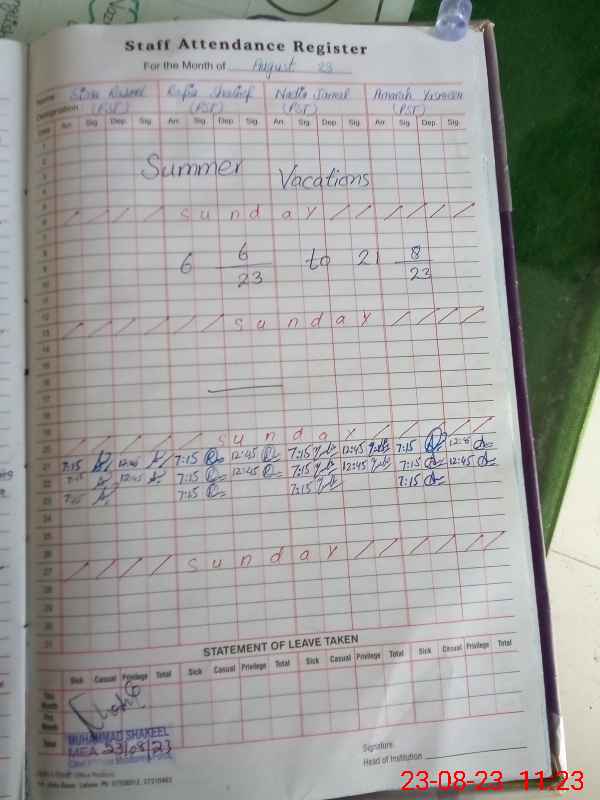 Staff Attendance Register
For the Month of August 23
Name Rafia Nadia Jamal Amarah Yasmeen
Designation (PST) (PST) (PST) (PST)
Date Arr. Sig. Dep. Sig. Arr. Sig. Dep. Sig. Arr. Sig. Dep. Sig. Arr. Sig. Dep. Sig.
1
2
3
4
5
6 Sunday
7
8
9
10
11
12
13 Sunday
14
15
16
17
18
19
20 Sunday
21 7:15 7:15 12:45 7:15 12:45 7:15
22 7:15 12:45 7:15 12:45 7:15 12:45 7:15 12:45
23 7:15 7:15 7:15 7:15
24
25
26
27 Sunday
28
29
30
31
Summer Vacations
6 6/23 to 21 8/23
STATEMENT OF LEAVE TAKEN
Sick Casual Privilege Total Sick Casual Privilege Total Sick Casual Privilege Total Sick Casual Privilege Total
This Month
Pre. Month
Total
MUHAMMAD SHAKEEL
MEA 23/08/23
Signature
Head of Institution
23-08-23 11:23